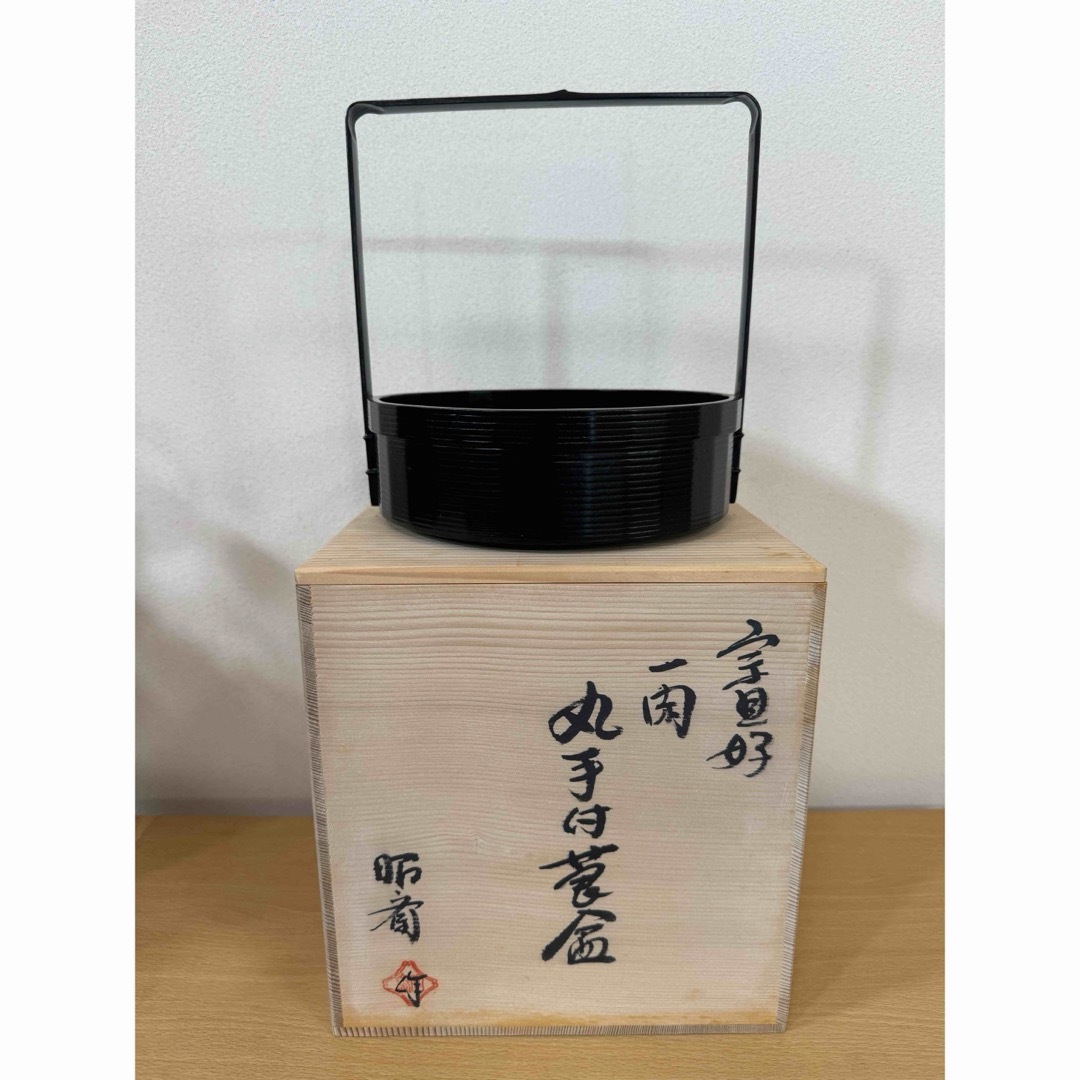 宗旦好
一閑
丸手付莨盆
昭斎
作